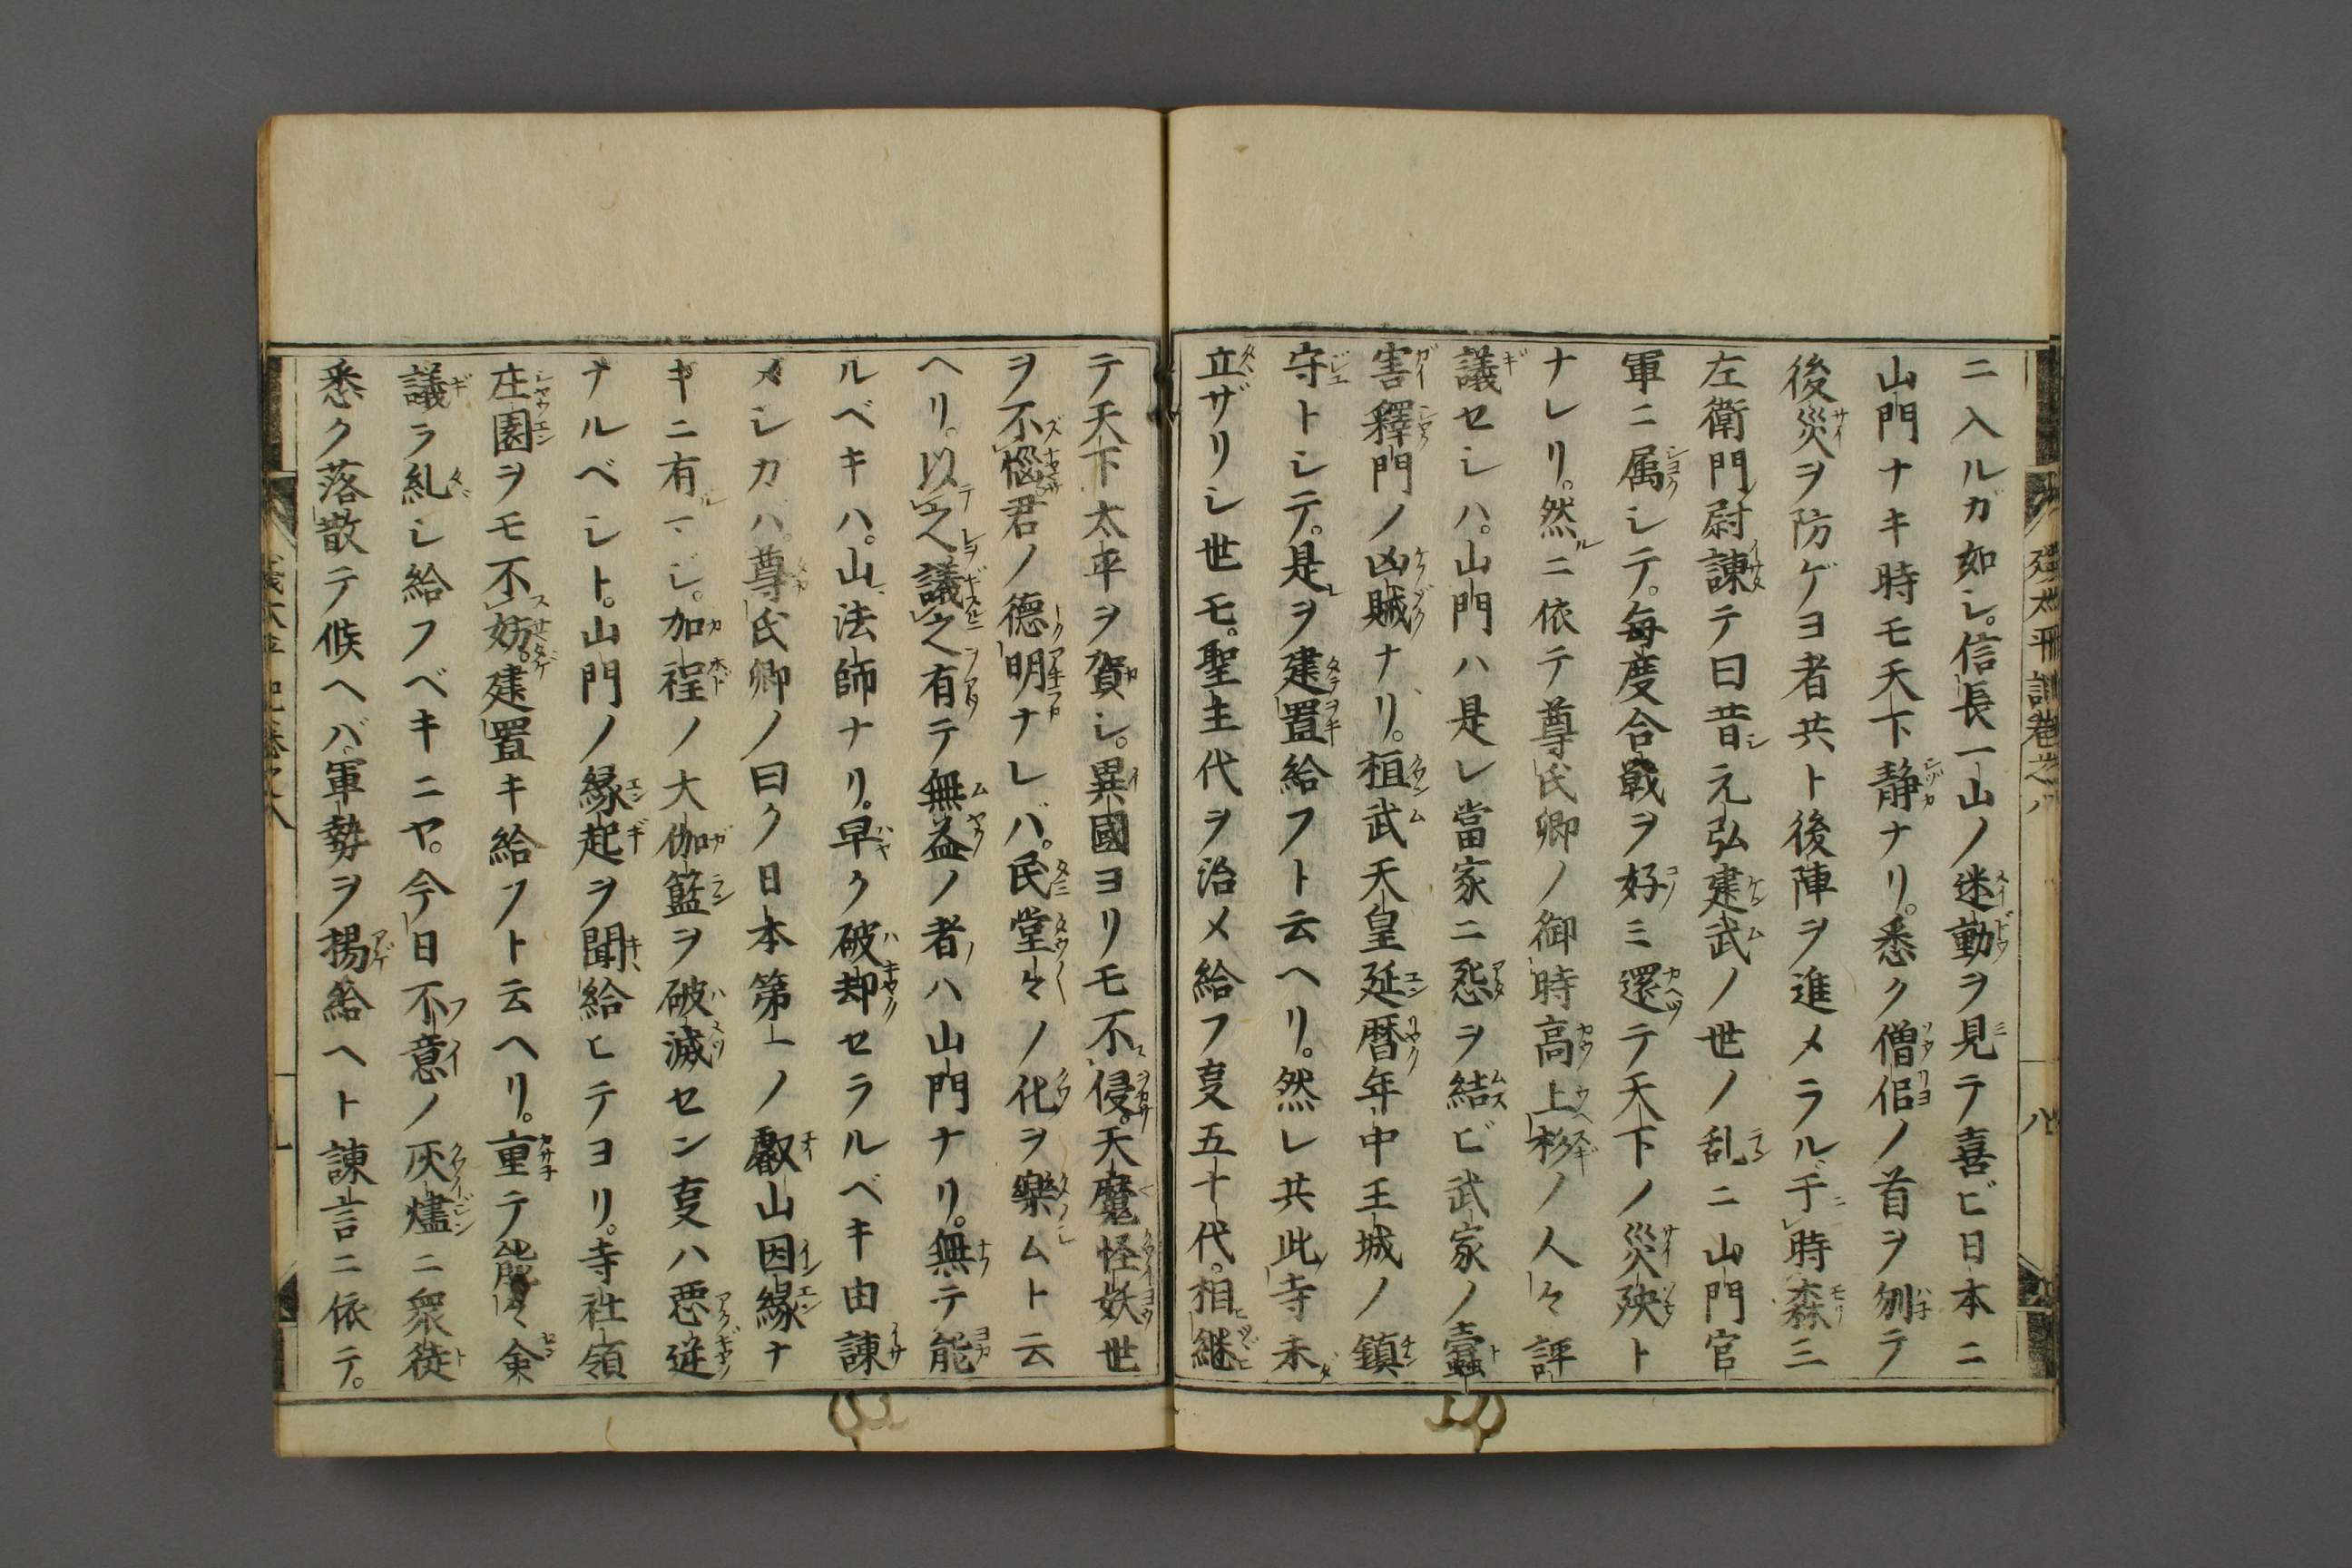 ニ入ルガ如シ。信長一山ノ迷動ヲ見テ喜ビ日本ニ
山門ナキ時モ天下静ナリ。悉ク僧侶ノ首ヲ刎テ
後災ヲ防ゲヨ者共ト後陣ヲ進メラル于時森三
左衛門尉諫テ曰昔元弘建武ノ世ノ乱ニ山門官
軍ニ属シテ。毎度合戦ヲ好ミ還テ天下ノ災殃ト
ナレリ。然ニ依テ尊氏卿ノ御時高上杦ノ人々評
議セシハ。山門ハ是レ當家ニ怨ヲ結ビ武家ノ蠹
害釋門ノ凶賊ナリ。桓武天皇延暦年中王城ノ鎮
守トシテ。是ヲ建置給フト云ヘリ。然レ共此寺未
立ザリシ世モ。聖主代ヲ治メ給フ叓五十代。相継
テ天下太平ヲ賀シ。異國ヨリモ不侵。天魔怪妖世
ヲ不惱君ノ德明ナレバ。民堂々ノ化ヲ樂ムト云
ヘリ。以之議之有テ無益ノ者ハ山門ナリ。無テ能
ルベキハ。山法師ナリ。早ク破却セラルベキ由諫
メシカバ。尊氏卿ノ曰ク日本第一ノ叡山因縁ナ
キニ有ーシ。加程ノ大伽籃ヲ破滅セン叓ハ悪逆
ナルベシト。山門ノ縁起ヲ聞給ヒテヨリ。寺社領
庄園ヲモ不妨。建置キ給フト云ヘリ。重テ能々僉
議ヲ糺シ給フベキニヤ。今日不意ノ灰燼ニ衆徒
悉ク落散テ候ヘバ軍勢ヲ揚給ヘト諌言ニ依テ。